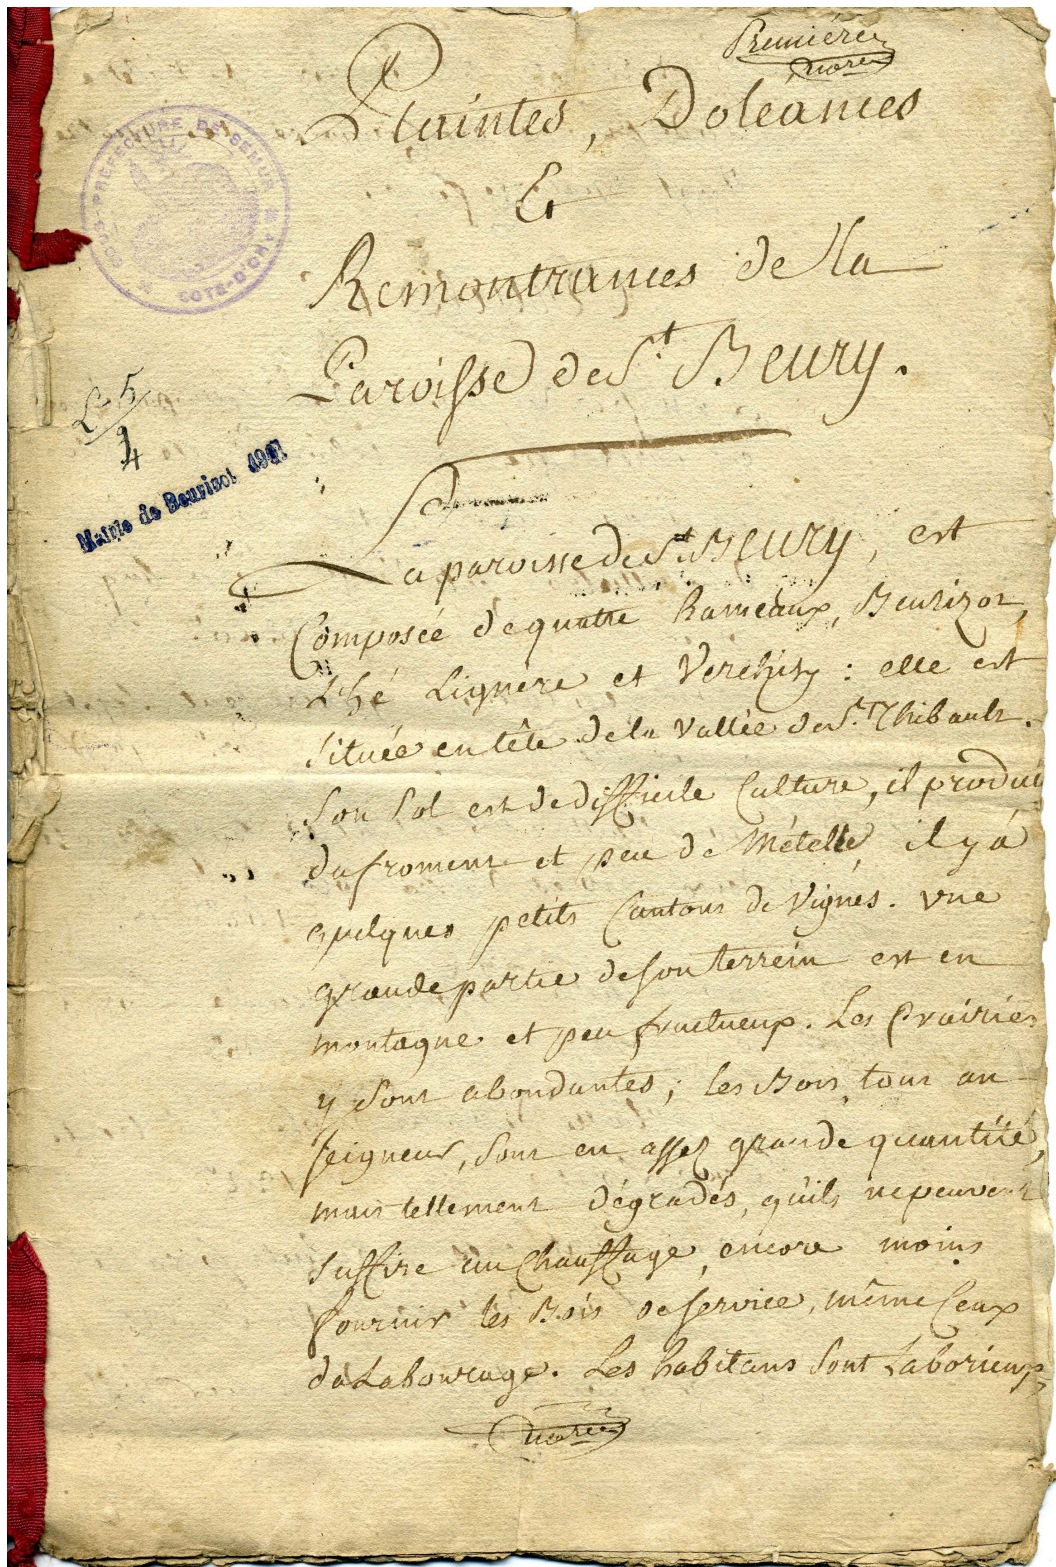 Premiére
Plaintes, Doléances
Et
Remontrances de la
Paroisse de St. Beury.
SOUS-PRÉFECTURE DE SEMUR
COTE-D'OR
L 5/4
Mairie de Beurizot
La paroisse de St Beury, est
Composée de quatre hameaux, Beurizot,
Lignere et Verchisy : elle est
Située en tête de la Vallée de St. Thibault.
Son Sol est de difficile Culture, il produit
du froment et peu de Mételle, il y á
quelques petits Cantons de Vignes. Une
grande partie de son terrein est en
montagne et peu fructueux. Les Prairies
y Sont abondantes ; les Bois, tous au
Seigneur, Sont en assez grande quantité,
mais tellement dégradés, qu'ils ne peuvent
Suffire au Chauffage, encore moins
fournir les Bois de service, même Ceux
de Labourage. Les habitans Sont Laborieux,